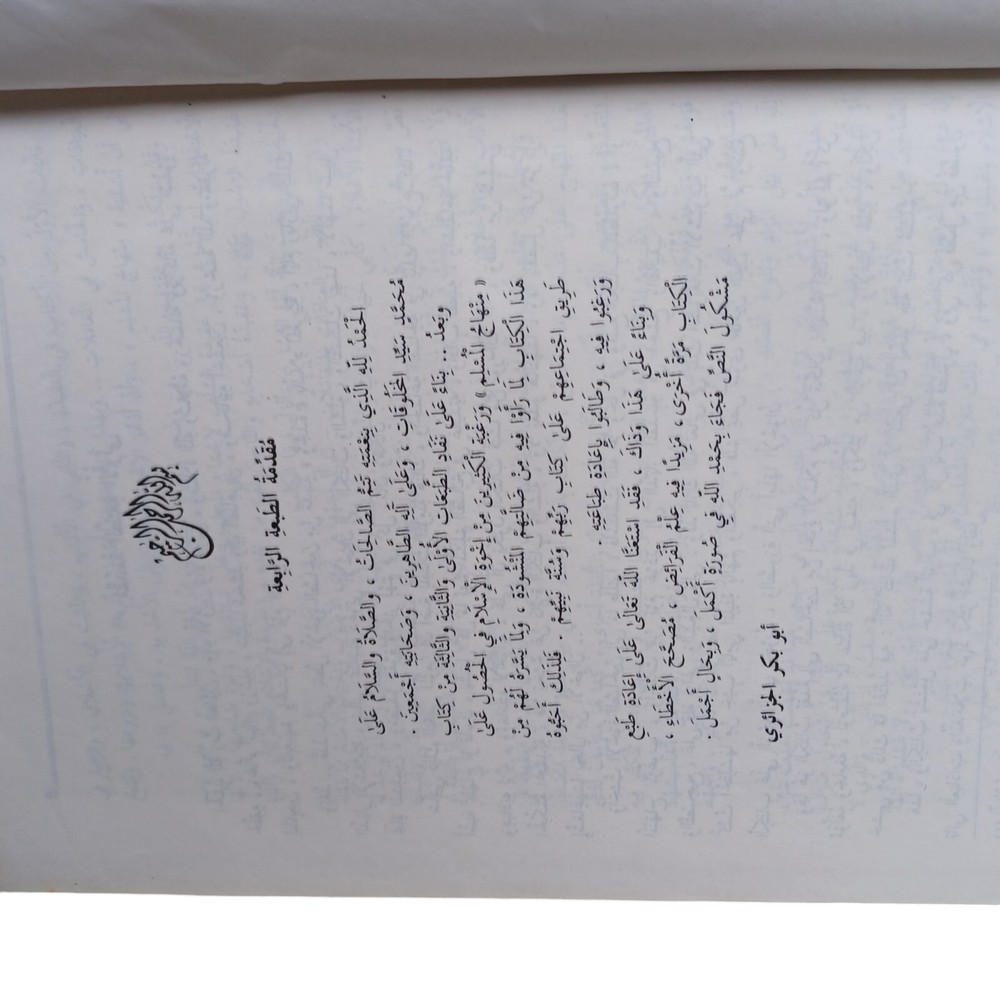 بسم الله الرحمن الرحيم
مُقَدِّمَةُ الطَّبعةِ الرَّابعةِ
الْحَمْدُ لِلَّهِ الَّذِي بِنِعْمَتِهِ تَتِمُّ الصَّالِحَاتُ ، والصَّلاةُ والسَّلامُ عَلَىٰ
مُحَمَّدٍ سَيِّدِ المَخْلُوقَاتِ ، وَعَلَىٰ آلِهِ الطَّاهِرِينَ ، وَصَحَابَتِهِ أَجْمَعِينَ .
وبَعدُ .. بِنَاءً عَلَىٰ نَفَادِ الطَّبَعَاتِ الأُوْلَىٰ وَالثَّانِيَةِ وَالثَّالِثَةِ مِنْ كِتَابِ
« مِنْهَاجُ المُسْلِمِ » وَرَغْبَةِ الْكَثِيرِينَ مِنْ إِخْوَةِ الإِسْلَامِ فِي الْحُصُولِ عَلَىٰ
هَذَا الْكِتَابِ لِمَا رَأَوْا فِيهِ مِنْ ضَالَّتِهِمُ المَنْشُودَةِ ، وَلِمَا يَسَّرَهُ لَهُمْ مِنْ
طَرِيقِ اجْتِمَاعِهِمْ عَلَىٰ كِتَابِ رَبِّهِمْ وَسُنَّةِ نَبِيِّهِمْ . فَلِذَلِكَ أَحَبُّوهُ
وَرَغِبُوا فِيهِ ، وَطَالَبُوا بِإِعَادَةِ طِبَاعَتِهِ .
وَبِنَاءً عَلَىٰ هَذَا وَذَاكَ ، فَقَدِ اسْتَعَنَّا اللهَ تَعَالَىٰ عَلَىٰ إِعَادَةِ طَبْعِ
الْكِتَابِ مَرَّةً أُخْرَىٰ ، مَزِيدًا فِيهِ عِلْمُ الْفَرَائِضِ ، مُصَحَّحَ الأَخْطَاءِ ،
مَشْكُولَ النَّصِّ فَجَاءَ بِحَمْدِ اللهِ فِي صُورَةٍ أَكْمَلَ ، وَبِحَالٍ أَجْمَلَ .
أبو بكر الجزائري